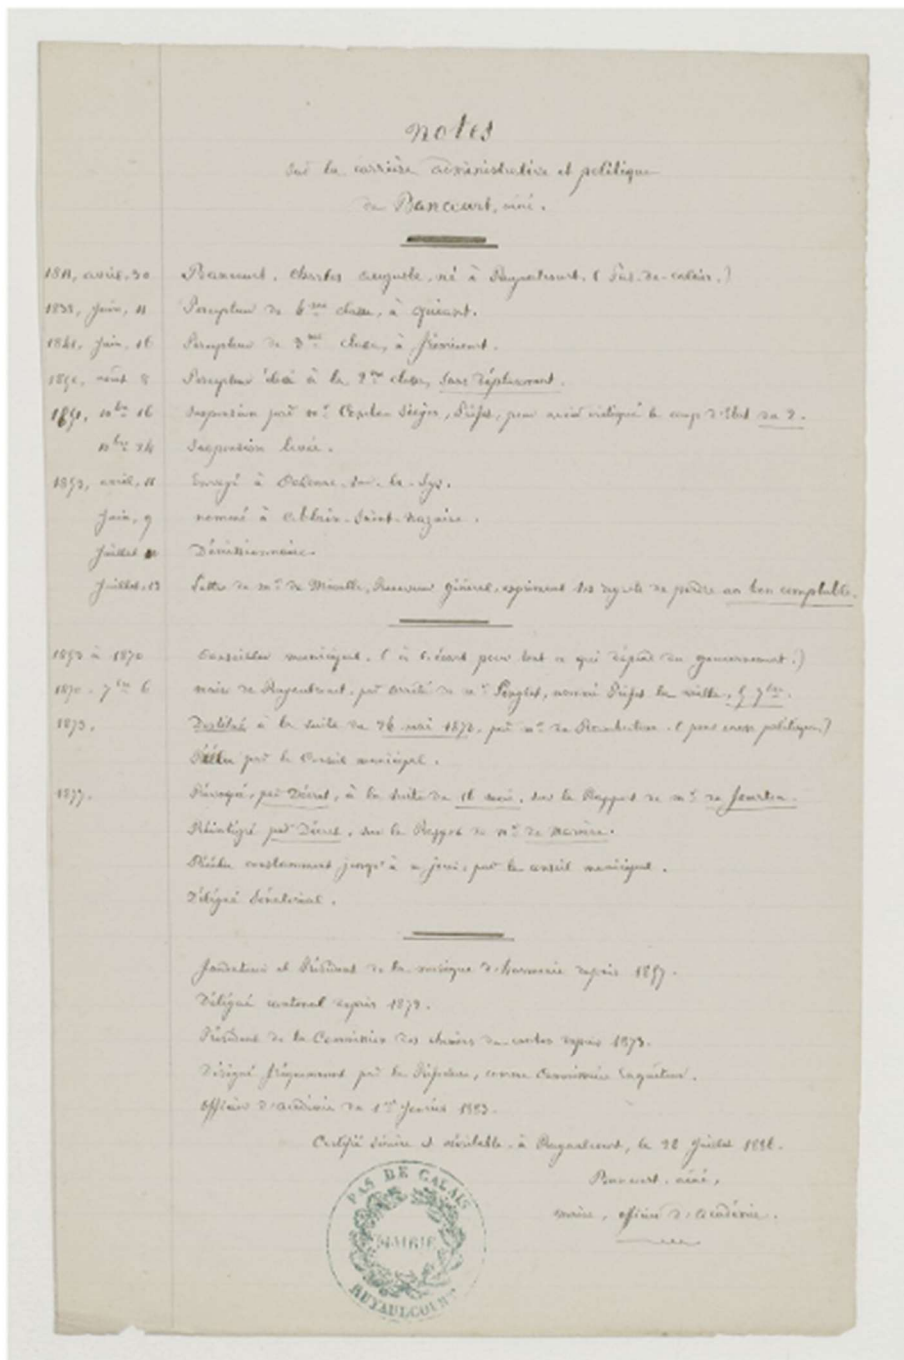 Notes
sur la carrière administrative et politique
de Bancourt, aîné.
1811, avril, 30 Bancourt, Charles Auguste, né à Ruyaulcourt. (Pas-de-Calais.)
1833, juin, 11 Percepteur de 4me classe, à Quéant.
1841, juin, 16 Percepteur de 3me classe, à Frémicourt.
1850, août 8 Percepteur élevé à la 2me classe, sans déplacement.
1851, Xbre 16 Suspension par Mr Préfet, pour avoir critiqué le coup d'Etat du 2.
Xbre 24 Suspension levée.
1853, avril, 11 Envoyé à sur-la-Lys.
juin, 9 nommé à Ablain-Saint-Nazaire.
juillet Démissionnaire.
juillet, 13 Lettre de Mr de Receveur général, exprimant ses regrets de perdre un bon comptable.
1853 à 1870 Conseiller municipal. (à l'écart pour tout ce qui dépend du gouvernement.)
1870, 7bre 6 Maire de Ruyaulcourt, par arrêté de Mr Lenglet, nommé Préfet la veille, 5 7bre.
1873. Destitué à la suite du 24 mai 1873, par Mr de (pour cause politique.)
Réélu par le Conseil municipal.
1877. Révoqué, par Décret, à la suite du 16 mai, sur le Rapport de Mr de Fourtou.
Réintégré par Décret, sur le Rapport de Mr de Marcère.
Réélu constamment jusqu'à ce jour, par le conseil municipal.
Délégué Sénatorial.
Fondateur et Président de la musique d'harmonie depuis 1857.
Délégué cantonal depuis 1879.
Président de la Commission des chemins du canton depuis 1873.
Désigné fréquemment par la Préfecture, comme Commissaire Enquêteur.
Officier d'académie du 1er janvier 1883.
Certifié sincère et véritable, à Ruyaulcourt, le 22 juillet 1886.
Bancourt, aîné,
maire, officier d'académie.
PAS DE CALAIS
MAIRIE
RUYAULCOURT